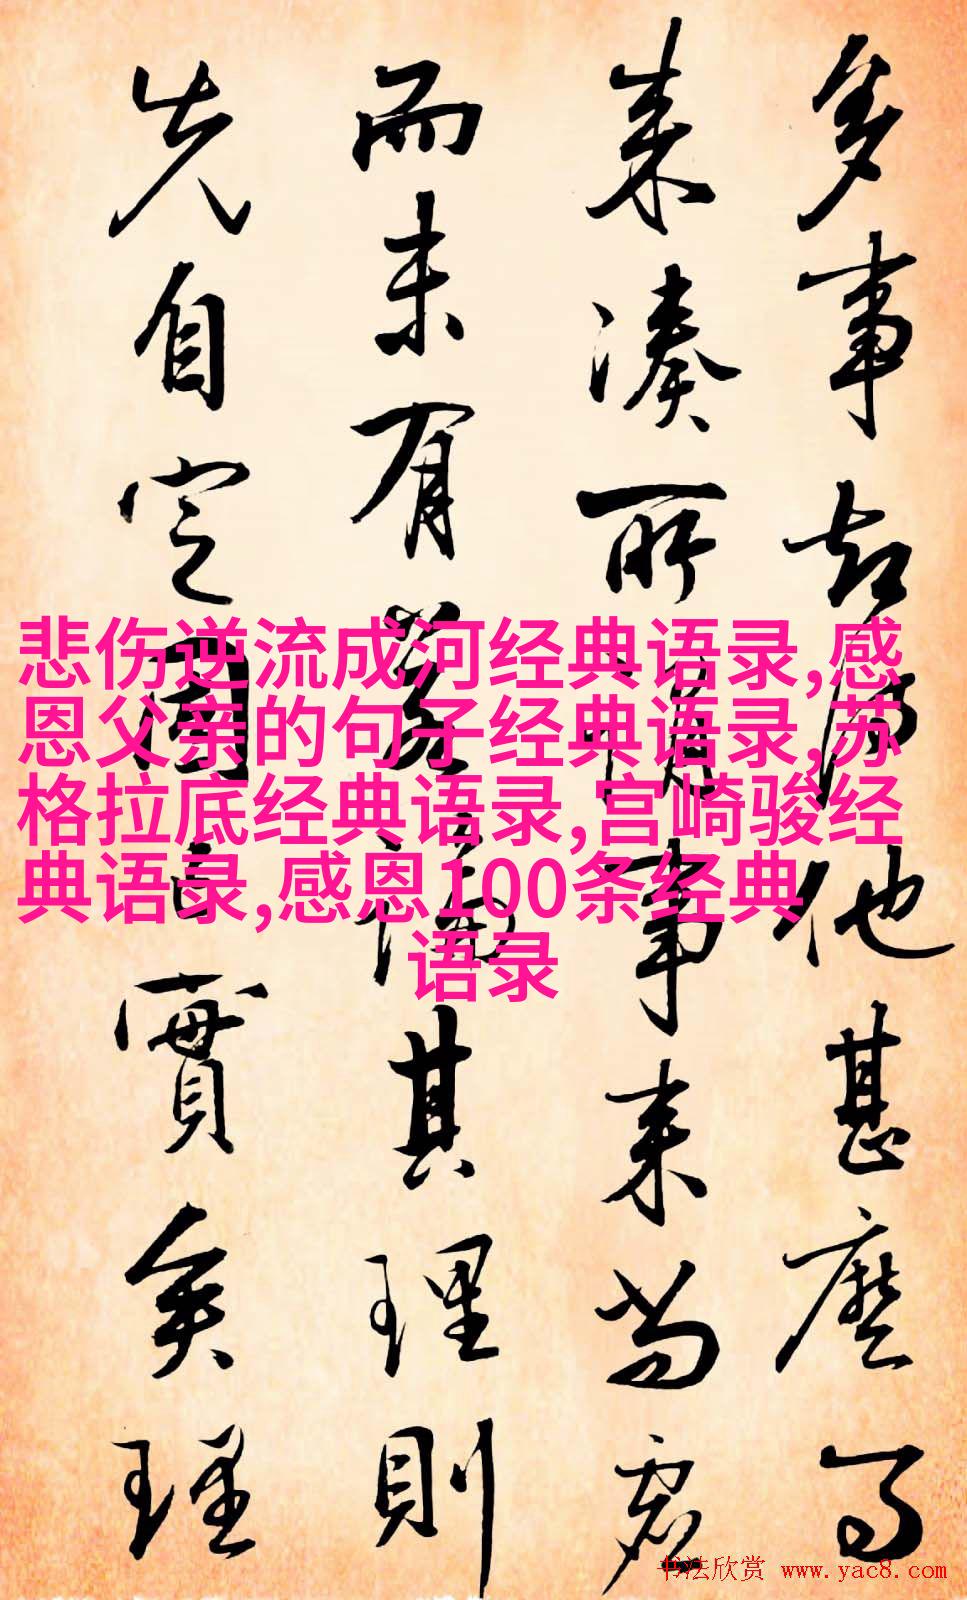 多事却他甚麼
来湊所事来
而未有其理則
先自定固實矣理
悲伤逆流成河经典语录,感
恩父亲的句子经典语录,苏
格拉底经典语录,宫崎骏经
典语录,感恩100条经典
语录
书法欣赏 www.yac8.com